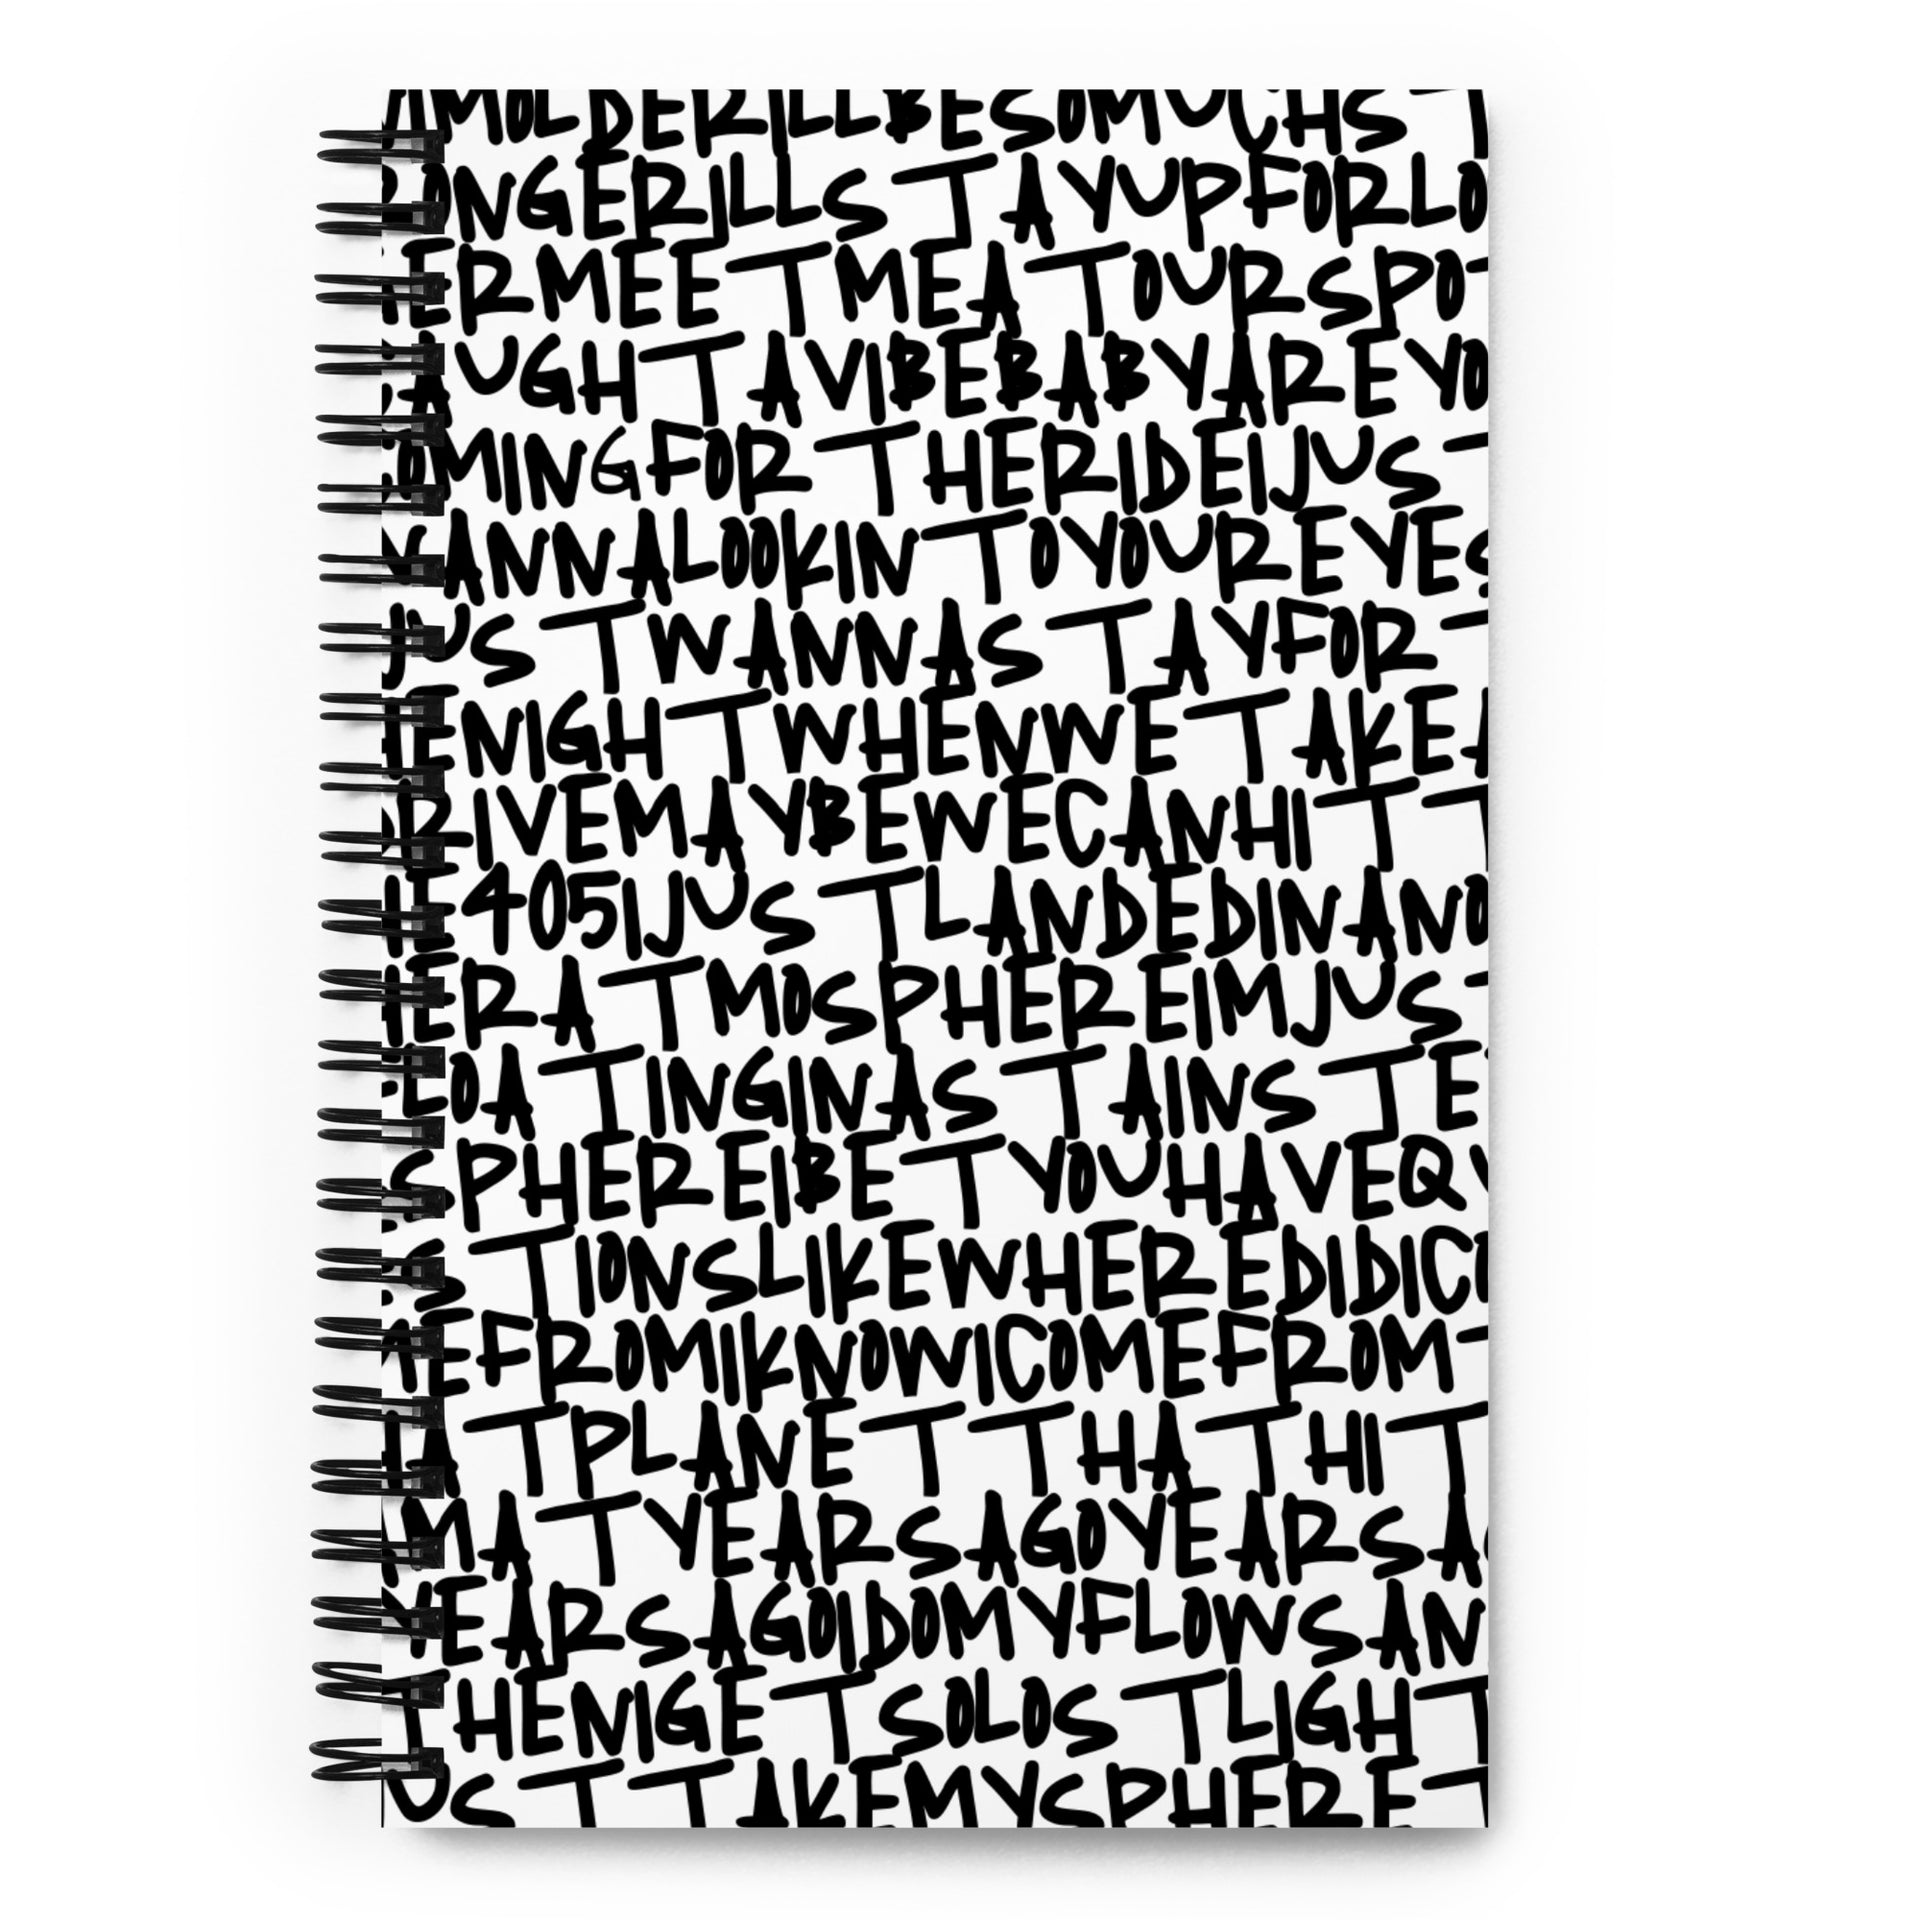 AMOLDERILLBESOMUCHST
RONGERILLSTAYUPFORLO
ERMEETMEATOURSPOT
CAUGHTAVIBEBABYAREYO
COMINGFORTHERIDEIJUST
WANNALOOKINTOYOUREYES
JUSTWANNASTAYFORT
HENIGHTWHENWETAKEA
DRIVEMAYBEWECANHITT
HE405IJUSTLANDEDINANO
HERATMOSPHEREIMJUST
LOATINGINASTAINSTE
SPHEREIBETYOUHAVEQU
STIONSLIKEWHEREDIDICO
MEFROMIKNOWICOMEFROMT
HATPLANETTHATHIT
MATYEARSAGOYEARSAG
YEARSAGOIDOMYFLOWSAN
THENIGETSOLOSTLIGHT
USTTAKEMYSPHERET